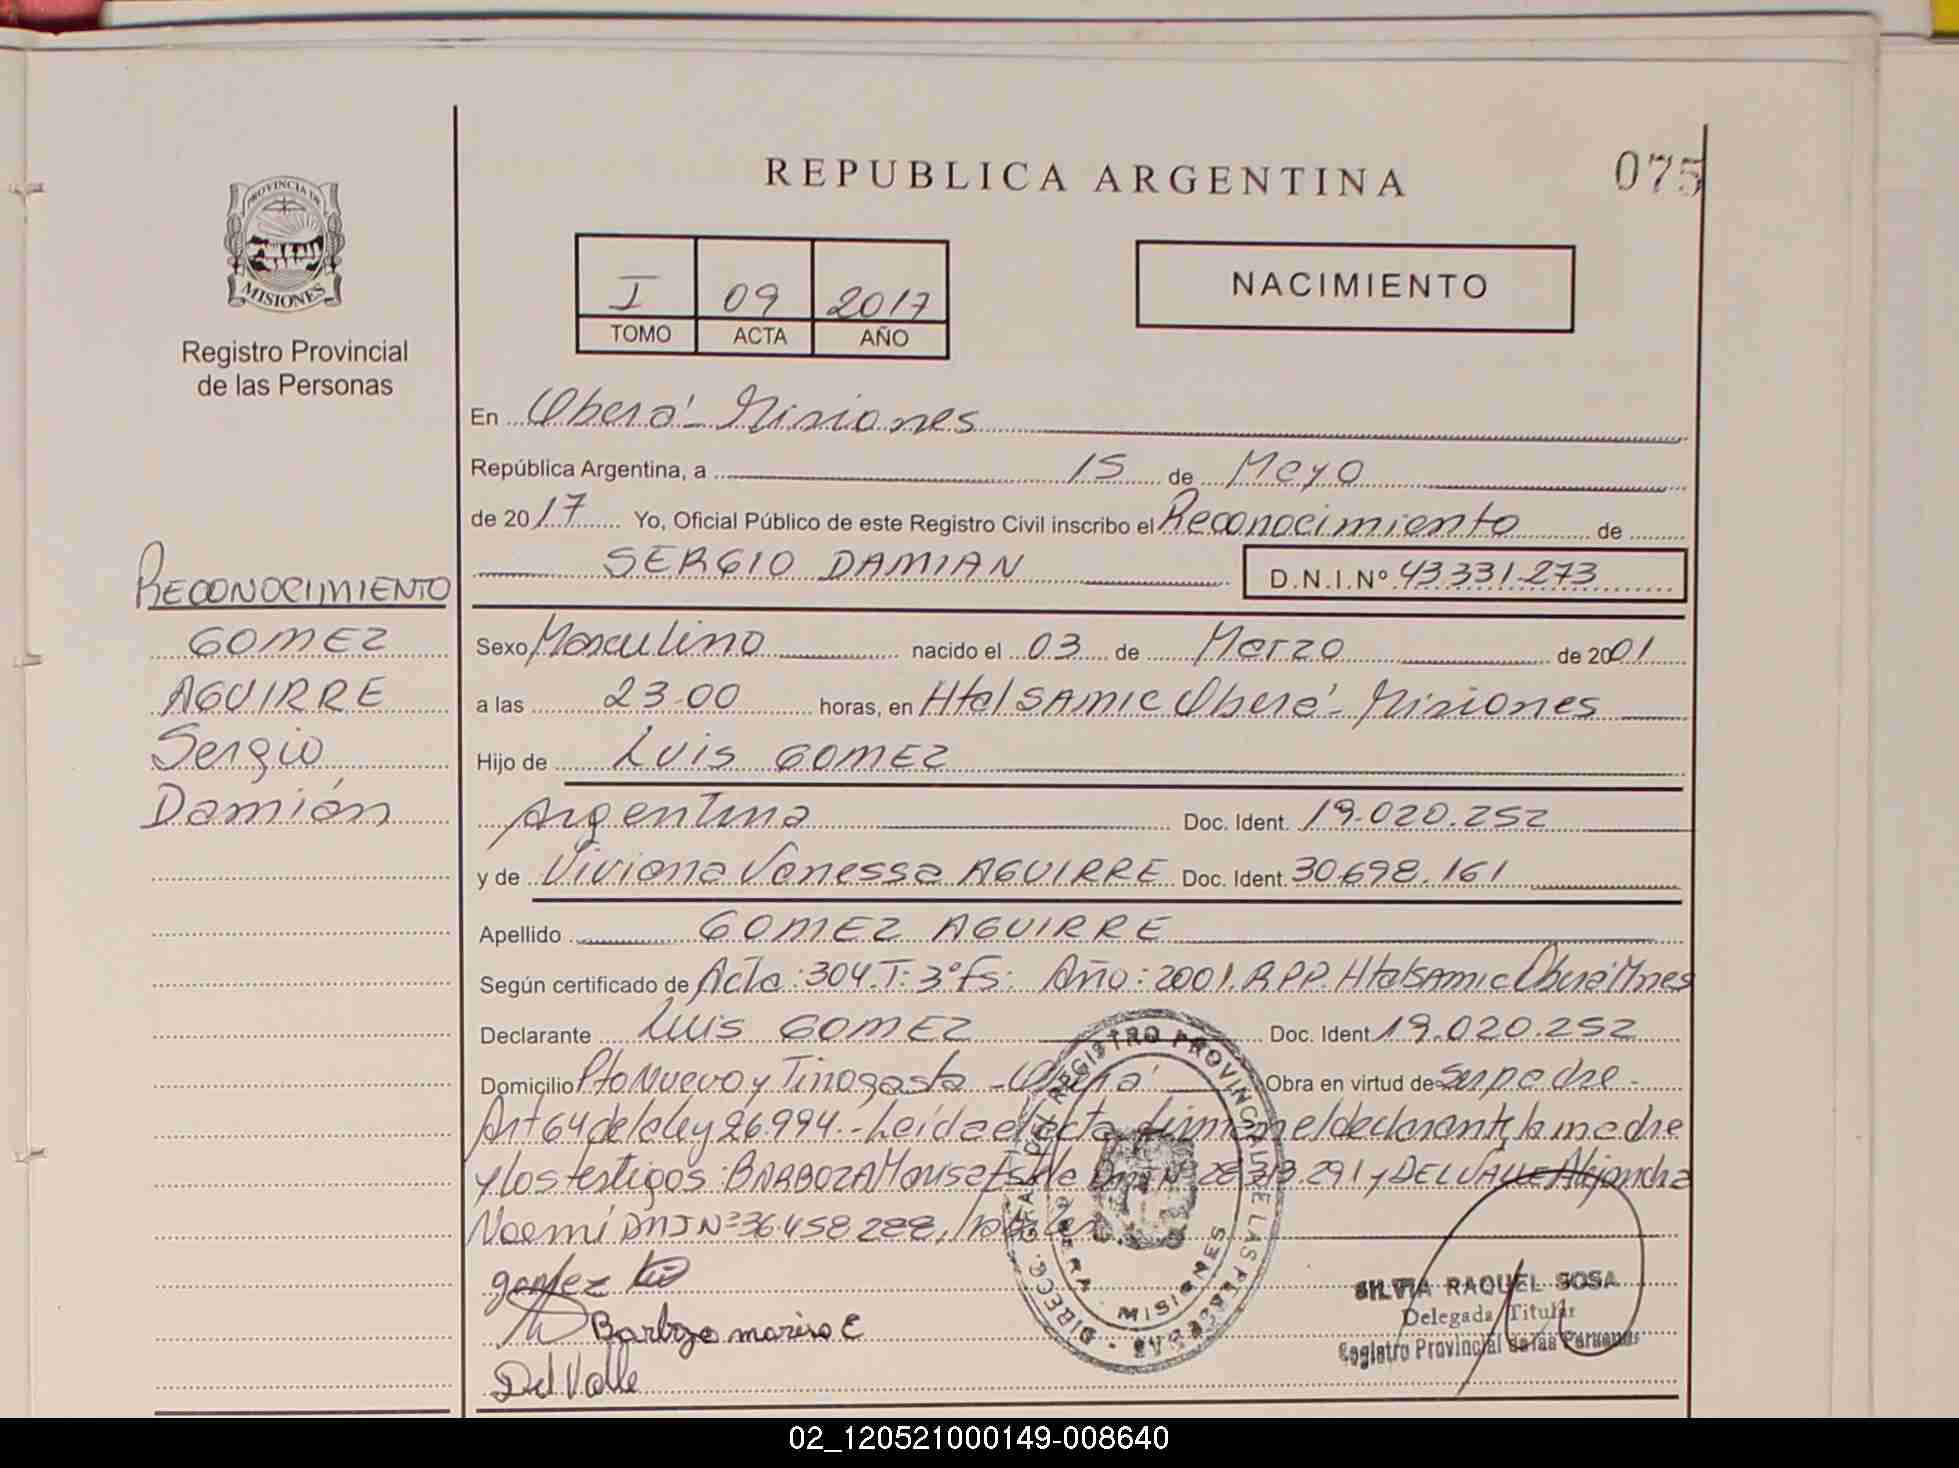 REPUBLICA ARGENTINA
075
PROVINCIA DE
MISIONES
Registro Provincial
de las Personas
I 09 2017
TOMO ACTA AÑO
NACIMIENTO
En Oberá - Misiones
República Argentina, a 15 de Mayo
de 2017 Yo, Oficial Público de este Registro Civil inscribo el Reconocimiento de
SERGIO DAMIAN D.N.I.Nº 43.331.273
RECONOCIMIENTO
GOMEZ
AGUIRRE
Sergio
Damián
Sexo Masculino nacido el 03 de Marzo de 2001
a las 23.00 horas, en Htal SAMIC Oberá - Misiones
Hijo de Luis GOMEZ
Argentina Doc. Ident. 19.020.252
y de Viviana Vanessa AGUIRRE Doc. Ident. 30.698.161
Apellido GOMEZ AGUIRRE
Según certificado de Acta: 304.T: 3º Fs: Año: 2001. RPP. Htal SAMIC Oberá Mnes
Declarante Luis GOMEZ Doc. Ident 19.020.252
Domicilio Pto Nuevo y Tinogasta - Oberá Obra en virtud de su padre -
Art 64 de la ley 26.994.- Leída el acta, firman el declarante, la madre
y los testigos: BARBOZA Marisa Estela DNI Nº 28.313.291 y DEL VALLE Alejandra
Noemí DNI Nº 36.458.288,
gomez
Barboza marisa E
Del Valle
DIRECC. GRAL. DEL REGISTRO PROVINCIAL DE LAS PERSONAS
OBERA - MISIONES
SILVIA RAQUEL SOSA
Delegada Titular
Registro Provincial de las Personas
02_120521000149-008640